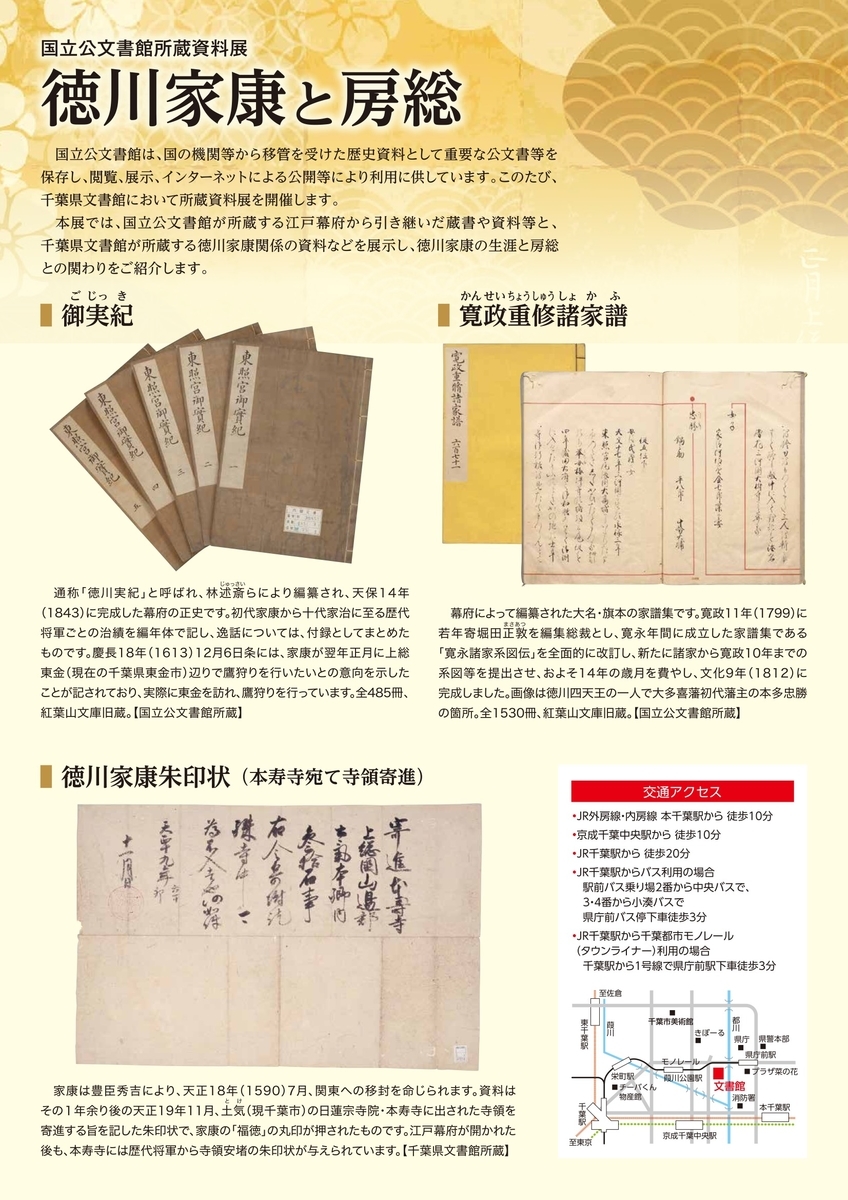 国立公文書館所蔵資料展
徳川家康と房総
国立公文書館は、国の機関等から移管を受けた歴史資料として重要な公文書等を
保存し、閲覧、展示、インターネットによる公開等により利用に供しています。このたび、
千葉県文書館において所蔵資料展を開催します。
本展では、国立公文書館が所蔵する江戸幕府から引き継いだ蔵書や資料等と、
千葉県文書館が所蔵する徳川家康関係の資料などを展示し、徳川家康の生涯と房総
との関わりをご紹介します。
ごじっき
御実紀
東照宮御實紀 五
東照宮御實紀 四
東照宮御實紀 三
東照宮御實紀 二
東照宮御實紀 一
通称「徳川実紀」と呼ばれ、林述斎らにより編纂され、天保14年
じゅっさい
(1843)に完成した幕府の正史です。初代家康から十代家治に至る歴代
将軍ごとの治績を編年体で記し、逸話については、付録としてまとめた
ものです。慶長18年(1613)12月6日条には、家康が翌年正月に上総
東金(現在の千葉県東金市)辺りで鷹狩りを行いたいとの意向を示した
ことが記されており、実際に東金を訪れ、鷹狩りを行っています。全485冊、
紅葉山文庫旧蔵。【国立公文書館所蔵】
かんせいちょうしゅうしょかふ
寛政重修諸家譜
寛政重脩諸家譜 六百七十一
幕府によって編纂された大名・旗本の家譜集です。寛政11年(1799)に
若年寄堀田正敦を編集総裁とし、寛永年間に成立した家譜集である
まさあつ
「寛永諸家系図伝」を全面的に改訂し、新たに諸家から寛政10年までの
系図等を提出させ、およそ14年の歳月を費やし、文化9年(1812)に
完成しました。画像は徳川四天王の一人で大多喜藩初代藩主の本多忠勝
の箇所。全1530冊、紅葉山文庫旧蔵。【国立公文書館所蔵】
徳川家康朱印状(本寿寺宛て寺領寄進)
寄進 本壽寺
上総國山邊郡
土氣本郷内
参拾石事
天正十九年
十一月日
家康は豊臣秀吉により、天正18年(1590)7月、関東への移封を命じられます。資料は
その1年余り後の天正19年11月、土気(現千葉市)の日蓮宗寺院・本寿寺に出された寺領を
とけ
寄進する旨を記した朱印状で、家康の「福徳」の丸印が押されたものです。江戸幕府が開かれた
後も、本寿寺には歴代将軍から寺領安堵の朱印状が与えられています。【千葉県文書館所蔵】
交通アクセス
・JR外房線・内房線 本千葉駅から 徒歩10分
・京成千葉中央駅から 徒歩10分
・JR千葉駅から 徒歩20分
・JR千葉駅からバス利用の場合
駅前バス乗り場2番から中央バスで、
3・4番から小湊バスで
県庁前バス停下車徒歩3分
・JR千葉駅から千葉都市モノレール
(タウンライナー)利用の場合
千葉駅から1号線で県庁前駅下車徒歩3分
至佐倉
東千葉駅
葭川
千葉市美術館
きぼーる
都川
県庁
県警本部
県庁前駅
モノレール
栄町駅
葭川公園駅
プラザ菜の花
文書館
チーバくん
物産館
消防署
千葉駅
本千葉駅
京成千葉中央駅
至東京